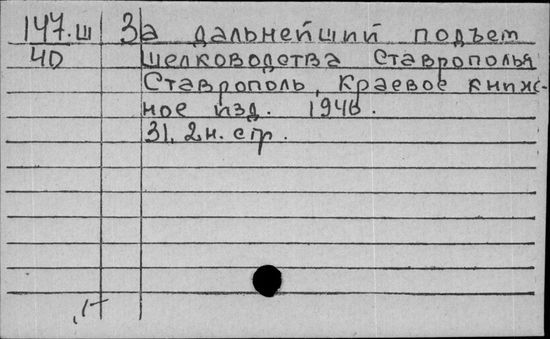 147.Ш За дальнейший подъем
40 шелководства Ставрополья
Ставрополь, Краевое книж-
ное изд. 1946.
31, 2 н. стр.